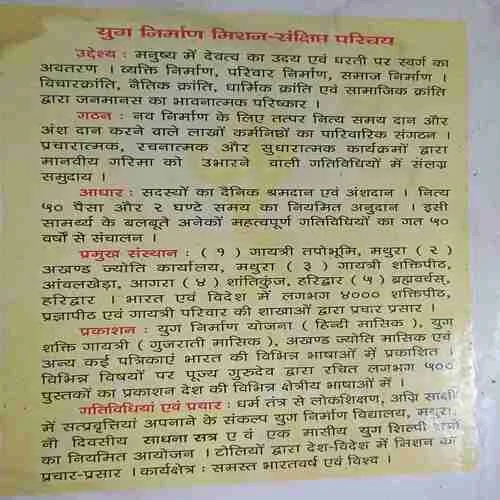 युग निर्माण मिशन-संक्षिप्त परिचय
उद्देश्य : मनुष्य में देवत्व का उदय एवं धरती पर स्वर्ग का
अवतरण । व्यक्ति निर्माण, परिवार निर्माण, समाज निर्माण ।
विचारक्रांति, नैतिक क्रांति, धार्मिक क्रांति एवं सामाजिक क्रांति
द्वारा जनमानस का भावनात्मक परिष्कार ।
गठन : नव निर्माण के लिए तत्पर नित्य समय दान और
अंश दान करने वाले लाखों कर्मनिष्ठों का पारिवारिक संगठन ।
प्रचारात्मक, रचनात्मक और सुधारात्मक कार्यक्रमों द्वारा
मानवीय गरिमा को उभारने वाली गतिविधियों में संलग्न
समुदाय ।
आधार : सदस्यों का दैनिक श्रमदान एवं अंशदान । नित्य
५० पैसा और २ घण्टे समय का नियमित अनुदान । इसी
सामर्थ्य के बलबूते अनेकों महत्वपूर्ण गतिविधियों का गत ५०
वर्षों से संचालन ।
प्रमुख संस्थान : ( १ ) गायत्री तपोभूमि, मथुरा ( २ )
अखण्ड ज्योति कार्यालय, मथुरा ( ३ ) गायत्री शक्तिपीठ,
आंवलखेड़ा, आगरा ( ४ ) शांतिकुंज, हरिद्वार ( ५ ) ब्रह्मवर्चस्,
हरिद्वार । भारत एवं विदेश में लगभग ४००० शक्तिपीठ,
प्रज्ञापीठ एवं गायत्री परिवार की शाखाओं द्वारा प्रचार प्रसार ।
प्रकाशन : युग निर्माण योजना ( हिन्दी मासिक ), युग
शक्ति गायत्री ( गुजराती मासिक ), अखण्ड ज्योति मासिक एवं
अन्य कई पत्रिकाएं भारत की विभिन्न भाषाओं में प्रकाशित ।
विभिन्न विषयों पर पूज्य गुरुदेव द्वारा रचित लगभग ५००
पुस्तकों का प्रकाशन देश की विभिन्न क्षेत्रीय भाषाओं में ।
गतिविधियां एवं प्रचार : धर्म तंत्र से लोकशिक्षण, अग्नि साक्षी
में सत्प्रवृत्तियां अपनाने के संकल्प युग निर्माण विद्यालय, मथुरा,
नौ दिवसीय साधना सत्र ए वं एक मासीय युग शिल्पी सत्रों
का नियमित आयोजन । टोलियों द्वारा देश-विदेश में मिशन का
प्रचार-प्रसार । कार्यक्षेत्र : समस्त भारतवर्ष एवं विश्व ।